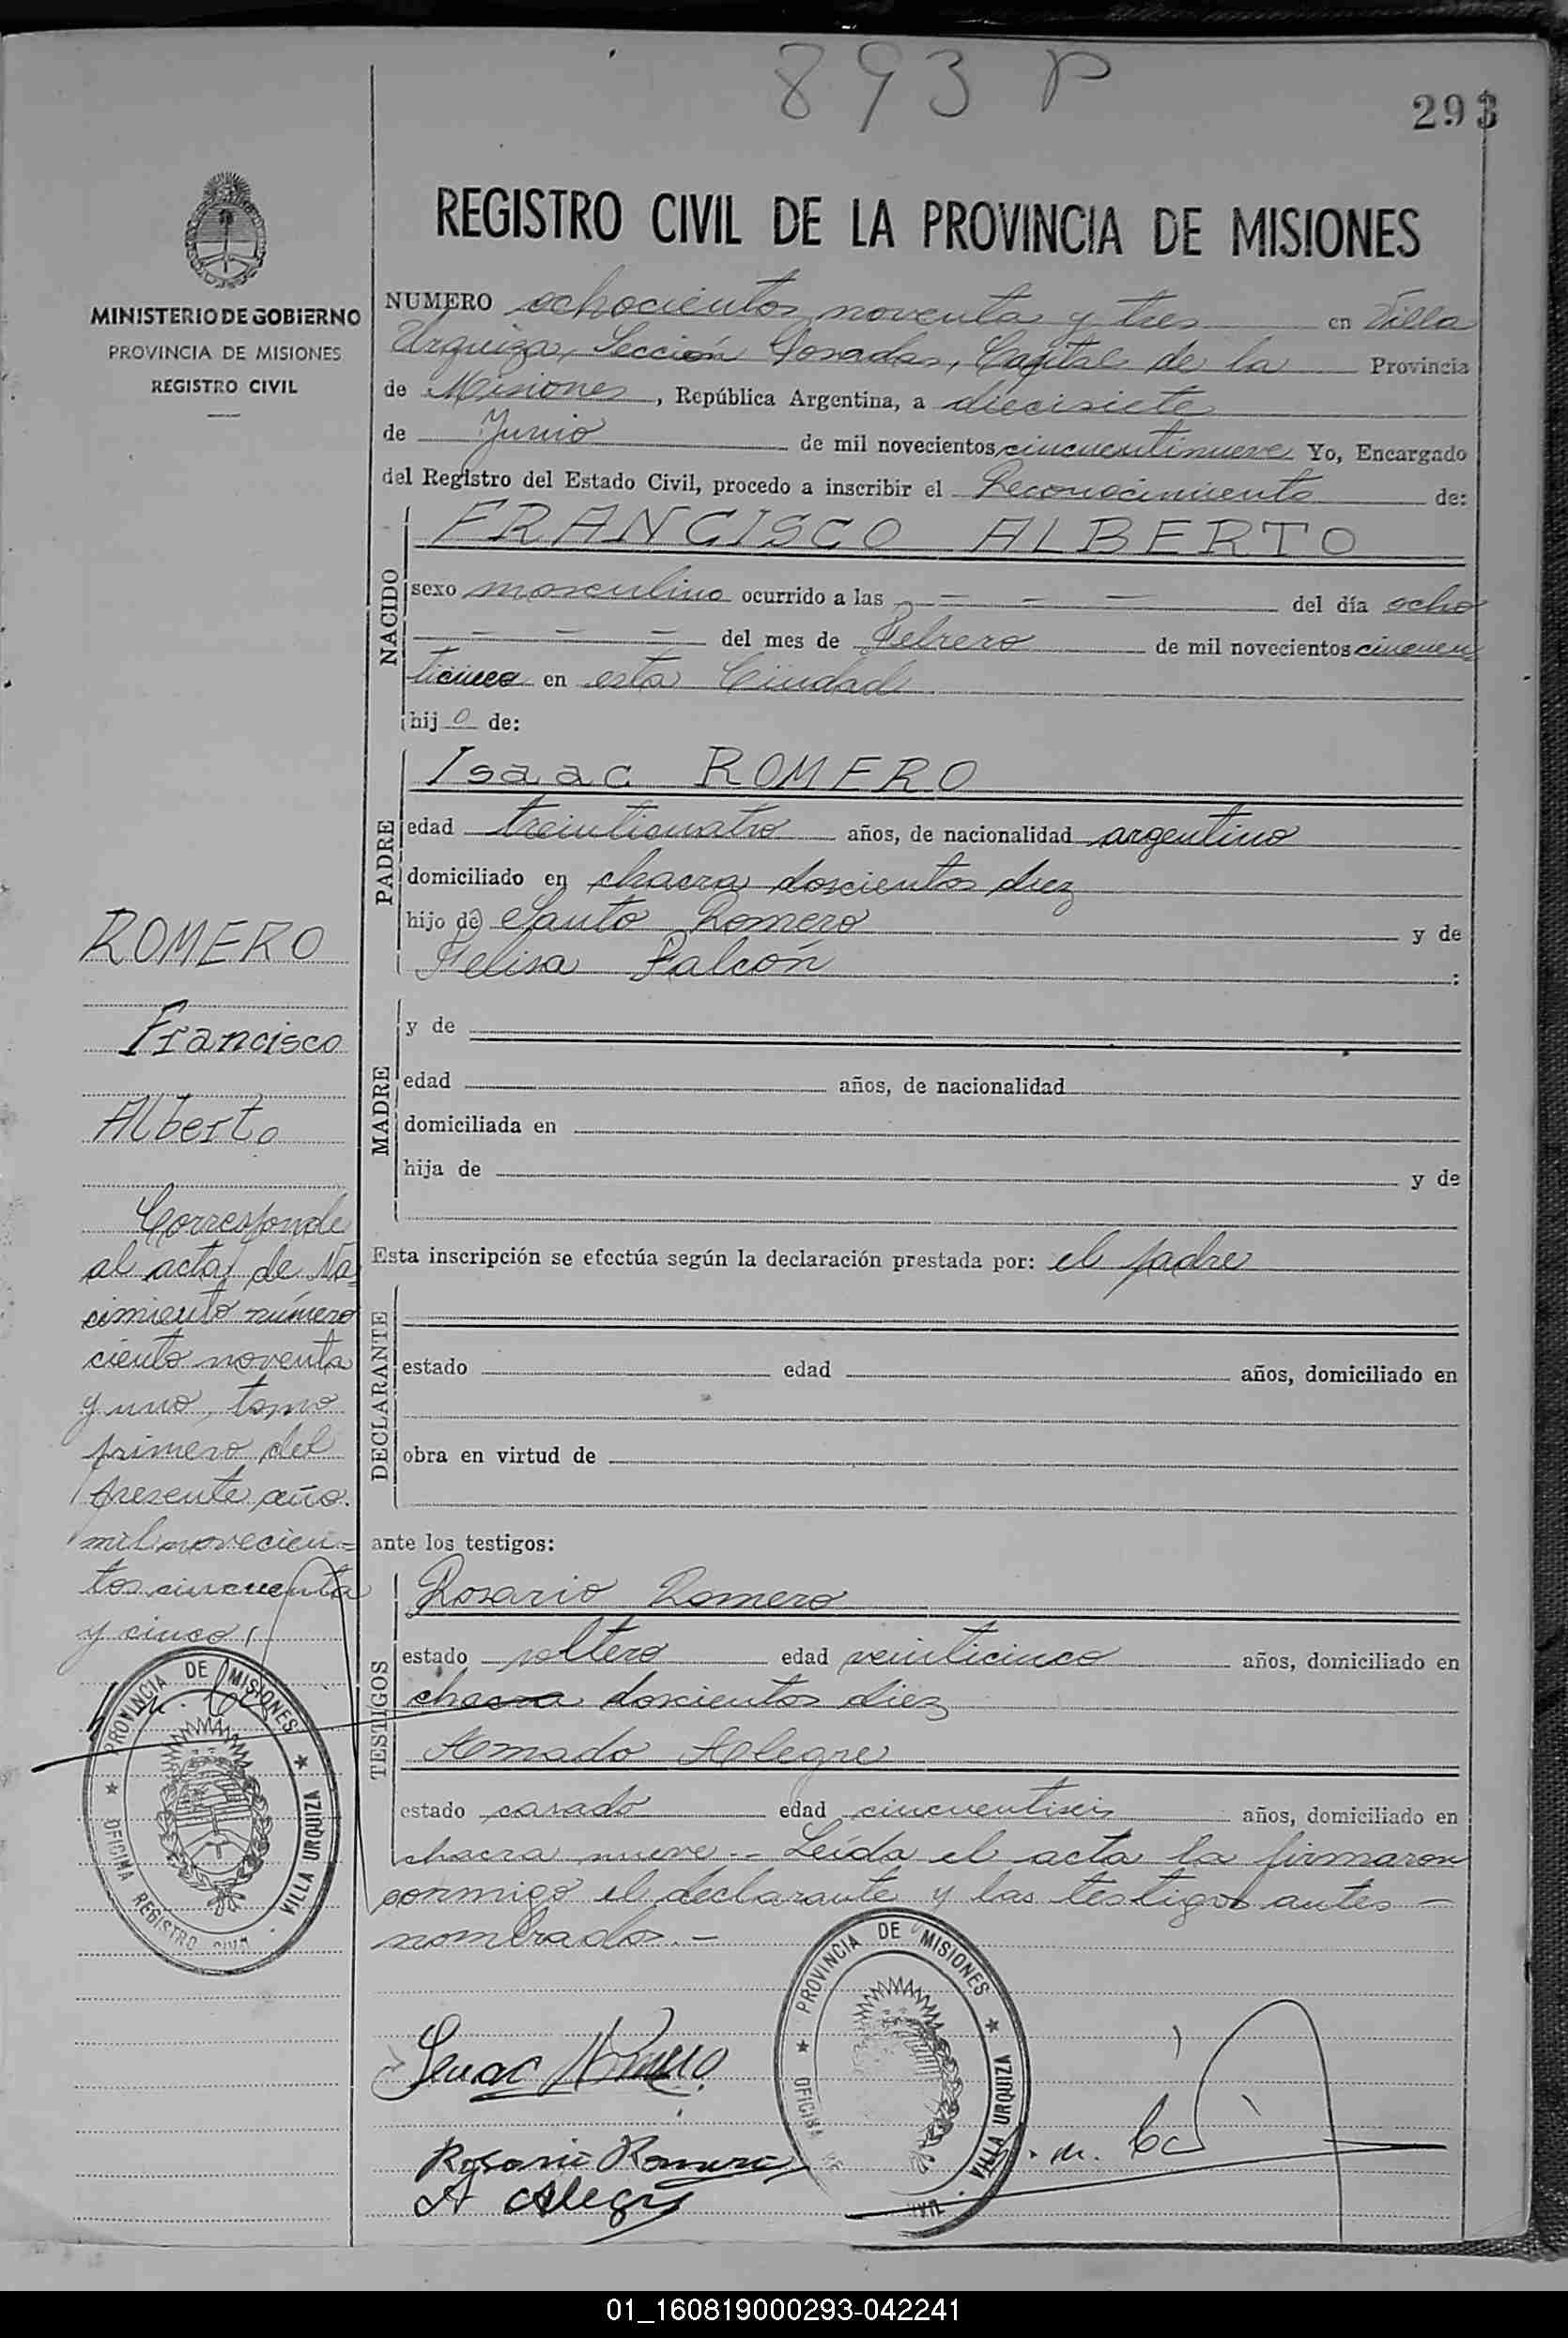 893 P
293
REGISTRO CIVIL DE LA PROVINCIA DE MISIONES
MINISTERIO DE GOBIERNO
PROVINCIA DE MISIONES
REGISTRO CIVIL
NUMERO ochocientos noventa y tres en Villa
Urquiza, Sección Posadas, Capital de la Provincia
de Misiones, República Argentina, a diecisiete
de Junio de mil novecientos cincuentinueve Yo, Encargado
del Registro del Estado Civil, procedo a inscribir el Reconocimiento de:
NACIDO
FRANCISCO ALBERTO
sexo masculino ocurrido a las - - - del día ocho
- - - del mes de Febrero de mil novecientos cincuen
ticinco en esta Ciudad
hijo de:
PADRE
Isaac ROMERO
edad treinticuatro años, de nacionalidad argentino
domiciliado en chacra doscientos diez
hijo de Santo Romero y de
Felisa Falcón :
MADRE
y de
edad años, de nacionalidad
domiciliada en
hija de y de
Esta inscripción se efectúa según la declaración prestada por: el padre
DECLARANTE
estado edad años, domiciliado en
obra en virtud de
ante los testigos:
TESTIGOS
Rosario Romero
estado soltero edad veinticinco años, domiciliado en
chacra doscientos diez
Amado Alegre
estado casado edad cincuentiseis años, domiciliado en
chacra nueve.- Leída el acta la firmaron
conmigo el declarante y los testigos antes
nombrados.-
ROMERO
Francisco
Alberto
Corresponde
al acta de Na=
cimiento número
ciento noventa
y uno, tomo
primero del
presente año.
mil novecien=
tos cincuenta
y cinco
PROVINCIA DE MISIONES
OFICINA REGISTRO CIVIL
VILLA URQUIZA
Isaac Romero
Rosario Romero
A Alegre
PROVINCIA DE MISIONES
OFICINA
VILLA URQUIZA
01_160819000293-042241